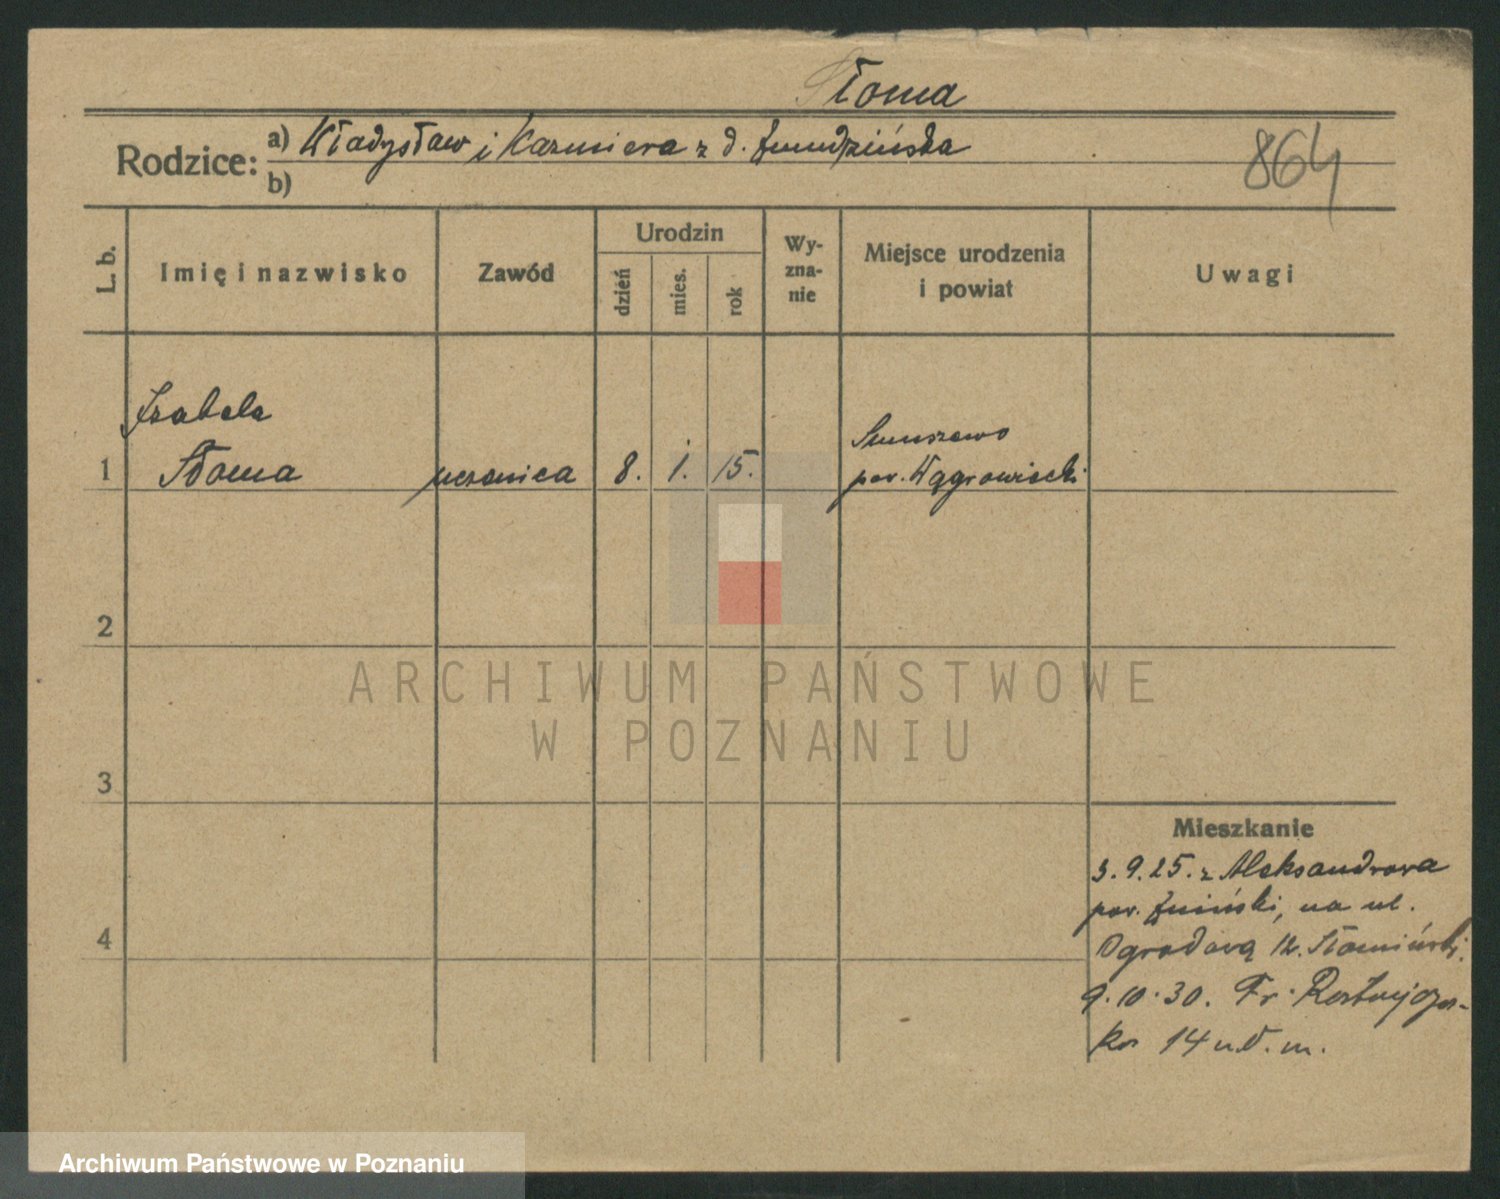 Słoma
Rodzice: a) Władysław i Kazmiera z d. Żmudzińska
b)
864
L. b.
Imię i nazwisko
Zawód
Urodzin
dzień
mies.
rok
Wy-
zna-
nie
Miejsce urodzenia
i powiat
Uwagi
Izabela
1 Słoma uczenica 8. 1. 15.
pow. Wągrowiecki
2
3
4
Mieszkanie
3.9.25. z Aleksandrowa
pow. Żniński, na ul.
Ogrodową 12. Słomiński.
9.10.30. Fr.
14
ARCHIWUM PAŃSTWOWE
W POZNANIU
Archiwum Państwowe w Poznaniu